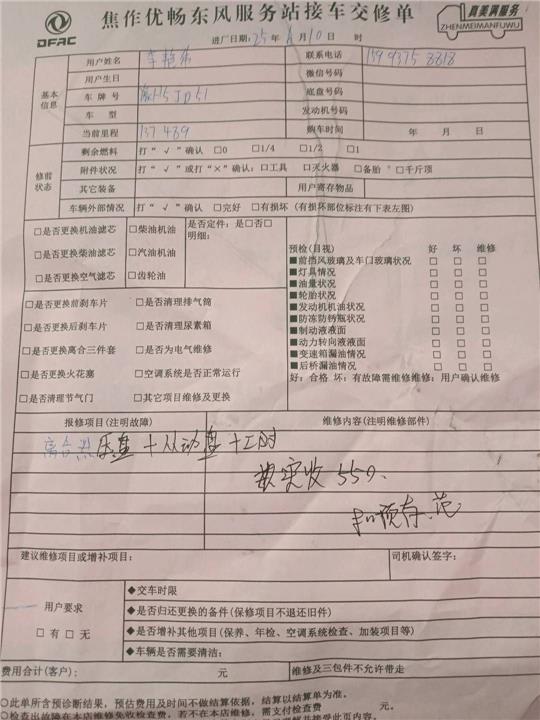 DFAC
焦作优畅东风服务站接车交修单
真美满服务
ZHENMEIMANFUWU
进厂日期:25年 月10日 时
基本信息
用户姓名 联系电话 159 9375 8818
用户生日 微信号码
车牌号 底盘号码
车型 发动机号码
当前里程 137489 购车时间 年 月 日
修前状态
剩余燃料 打“√”确认 □0 □1/4 □1/2 □1
附件状况 打“√”或打“×”确认:□工具 □灭火器 □备胎 □千斤顶
其它装备 用户寄存物品
车辆外部情况 打“√”确认 □完好 □有损坏(有损坏部位标注有下表左图)
□是否更换机油滤芯 □柴油机油 是否定件:是□否□
明细:
□是否更换柴油滤芯 □汽油机油
□是否更换空气滤芯 □齿轮油
预检(目视) 好 坏 维修
■前挡风玻璃及车门玻璃状况 □ □ □
■灯具情况 □ □ □
■油量状况 □ □ □
■轮胎状况 □ □ □
■发动机机油状况 □ □ □
■防冻防锈瓶状况 □ □ □
■制动液液面 □ □ □
■动力转向液液面 □ □ □
■变速箱漏油情况 □ □ □
■后桥漏油情况 □ □ □
好:合格 坏:有故障需维修维修:用户确认维修
□是否更换前刹车片 □是否清理排气筒
□是否更换后刹车片 □是否清理尿素箱
□是否更换离合三件套 □是否为电气维修
□是否更换火花塞 □空调系统是否正常运行
□是否清理节气门 □其它项目维修及更换
报修项目(注明故障) 维修内容(注明维修部件)
离合器压盘+从动盘+工时
实收550.
扣预存.范
建议维修项目或增补项目: 司机确认签字:
用户要求
□有□无
◆交车时限
◆是否归还更换的备件(保修项目不退还旧件)
◆是否增补其他项目(保养、年检、空调系统检查、加装项目等)
◆车辆是否需要清洁:
费用合计(客户): 元 维修及三包件不允许带走
○此单所含预诊断结果,预估费用及时间不做结算依据,结算以结算单为准。
○检查出故障在本店维修免收检查费,若不在本店维修,需支付检查费